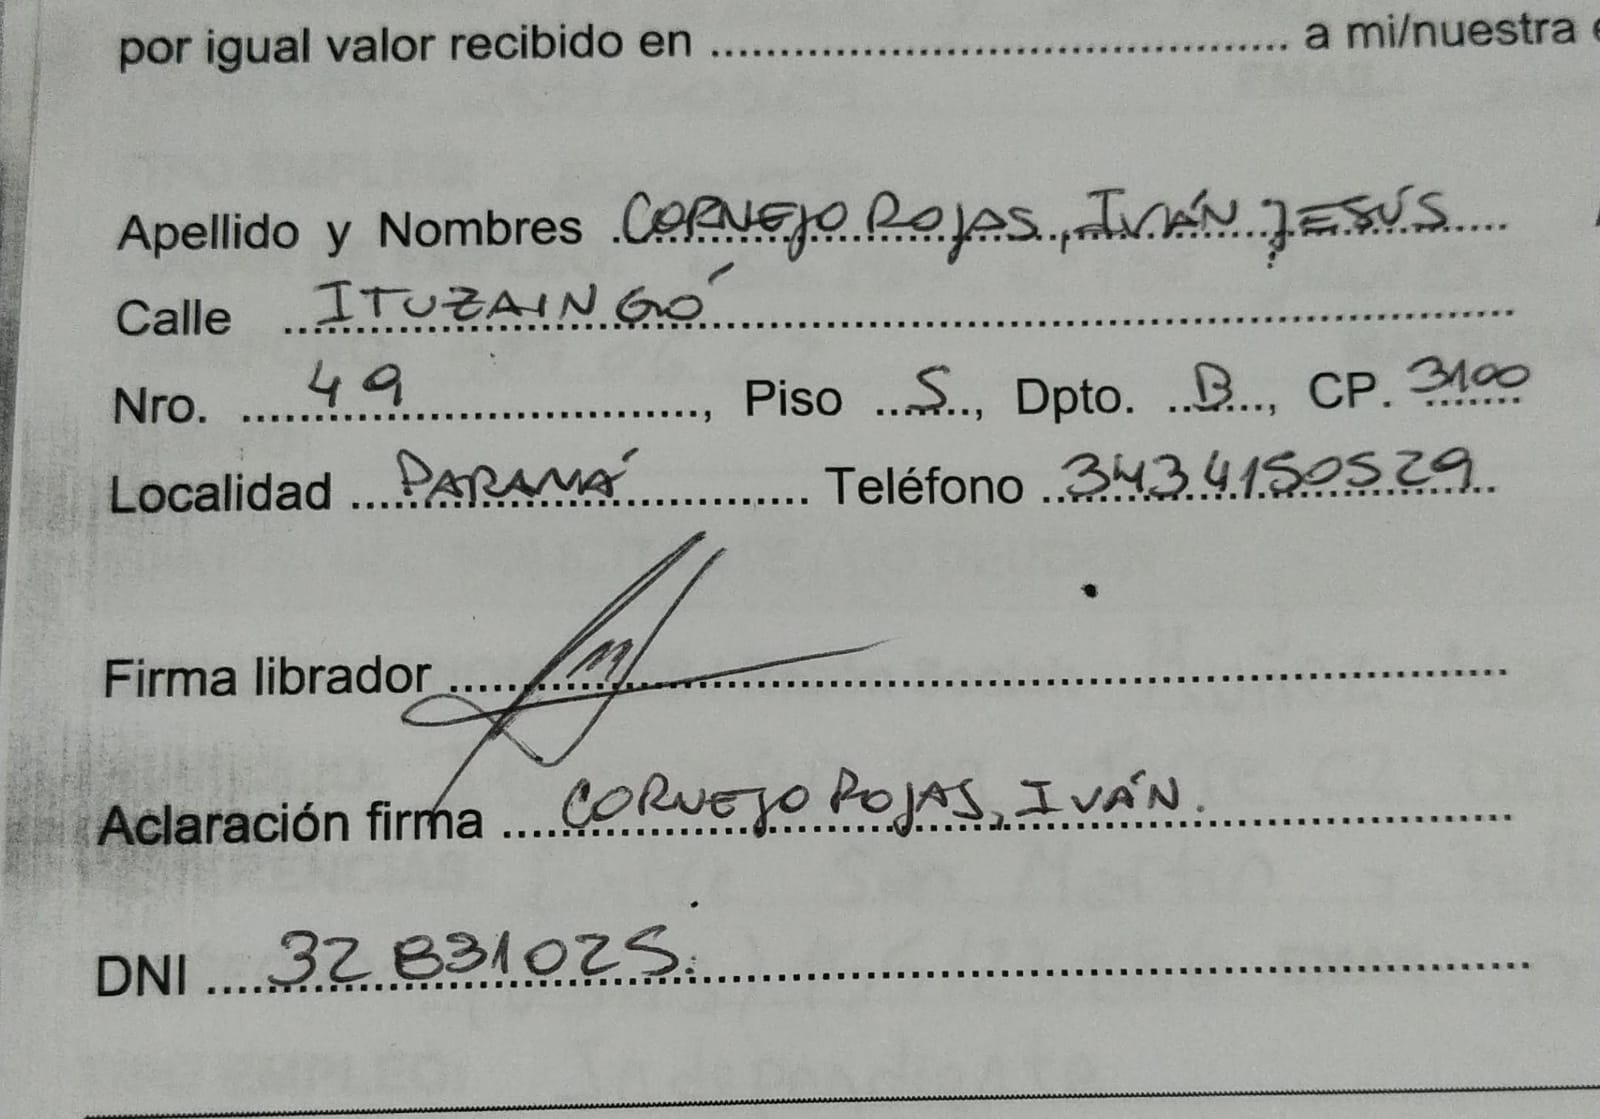 por igual valor recibido en ........................................ a mi/nuestra
Apellido y Nombres CORNEJO ROJAS, IVÁN JESÚS
Calle ITUZAINGÓ
Nro. 49, Piso 5, Dpto. B, CP. 3100
Localidad PARANÁ Teléfono 3434150529
Firma librador
Aclaración firma CORNEJO ROJAS, IVÁN.
DNI 32831025.